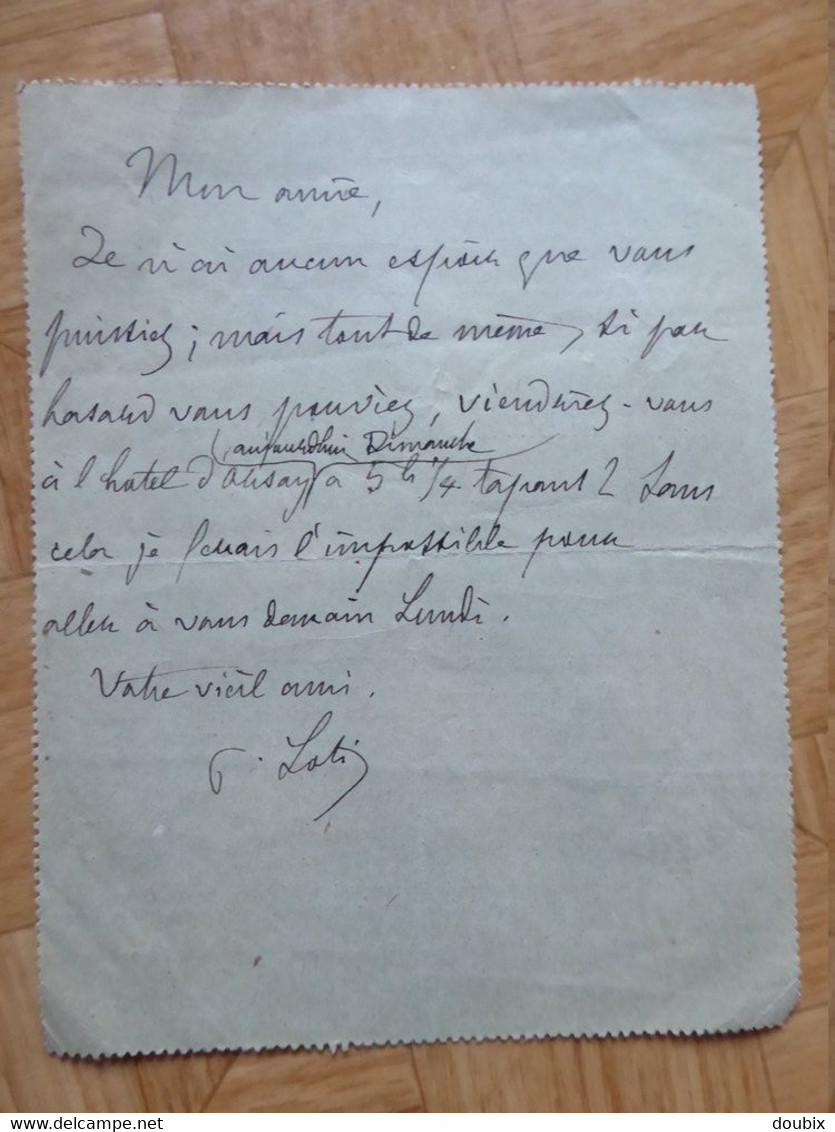 Mon amie,
Je n'ai aucun espoir que vous
puissiez ; mais tout de même, si par
hasard vous pouviez, viendrez-vous
aujourd'hui Dimanche
à l'hotel d'Orsay à 5h 1/4 tapant ? Sans
cela je ferais l'impossible pour
aller à vous demain Lundi.
Votre vieil ami.
P. Loti
delcampe.net
doubix